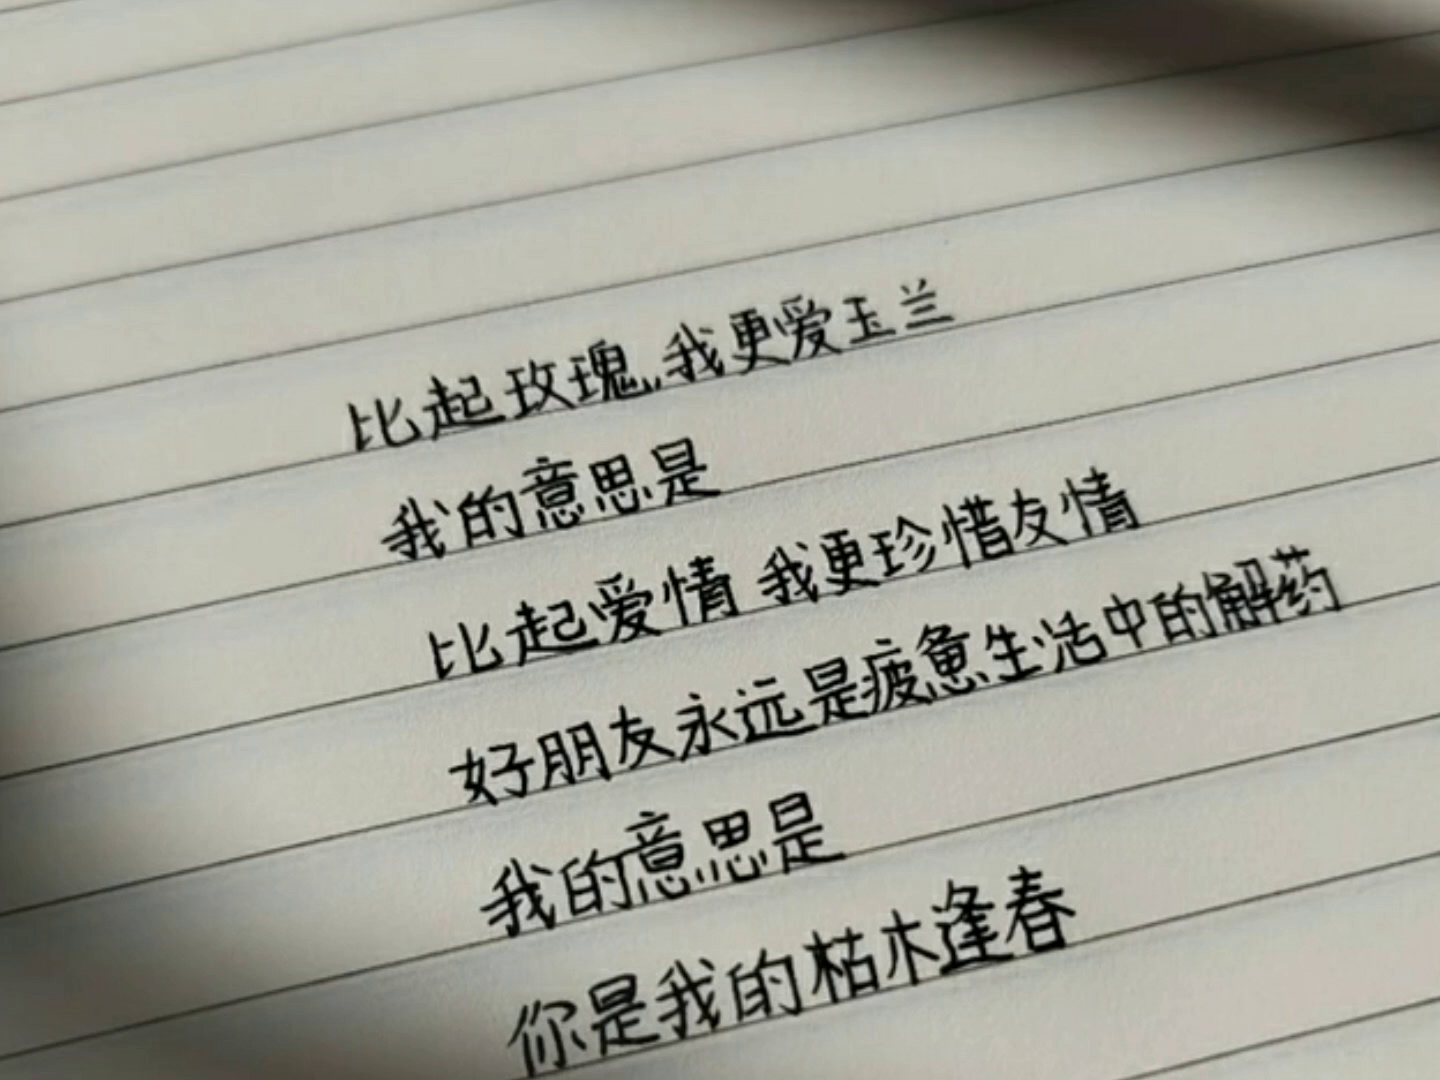 比起玫瑰,我更爱玉兰
我的意思是
比起爱情 我更珍惜友情
好朋友永远是疲惫生活中的解药
我的意思是
你是我的枯木逢春